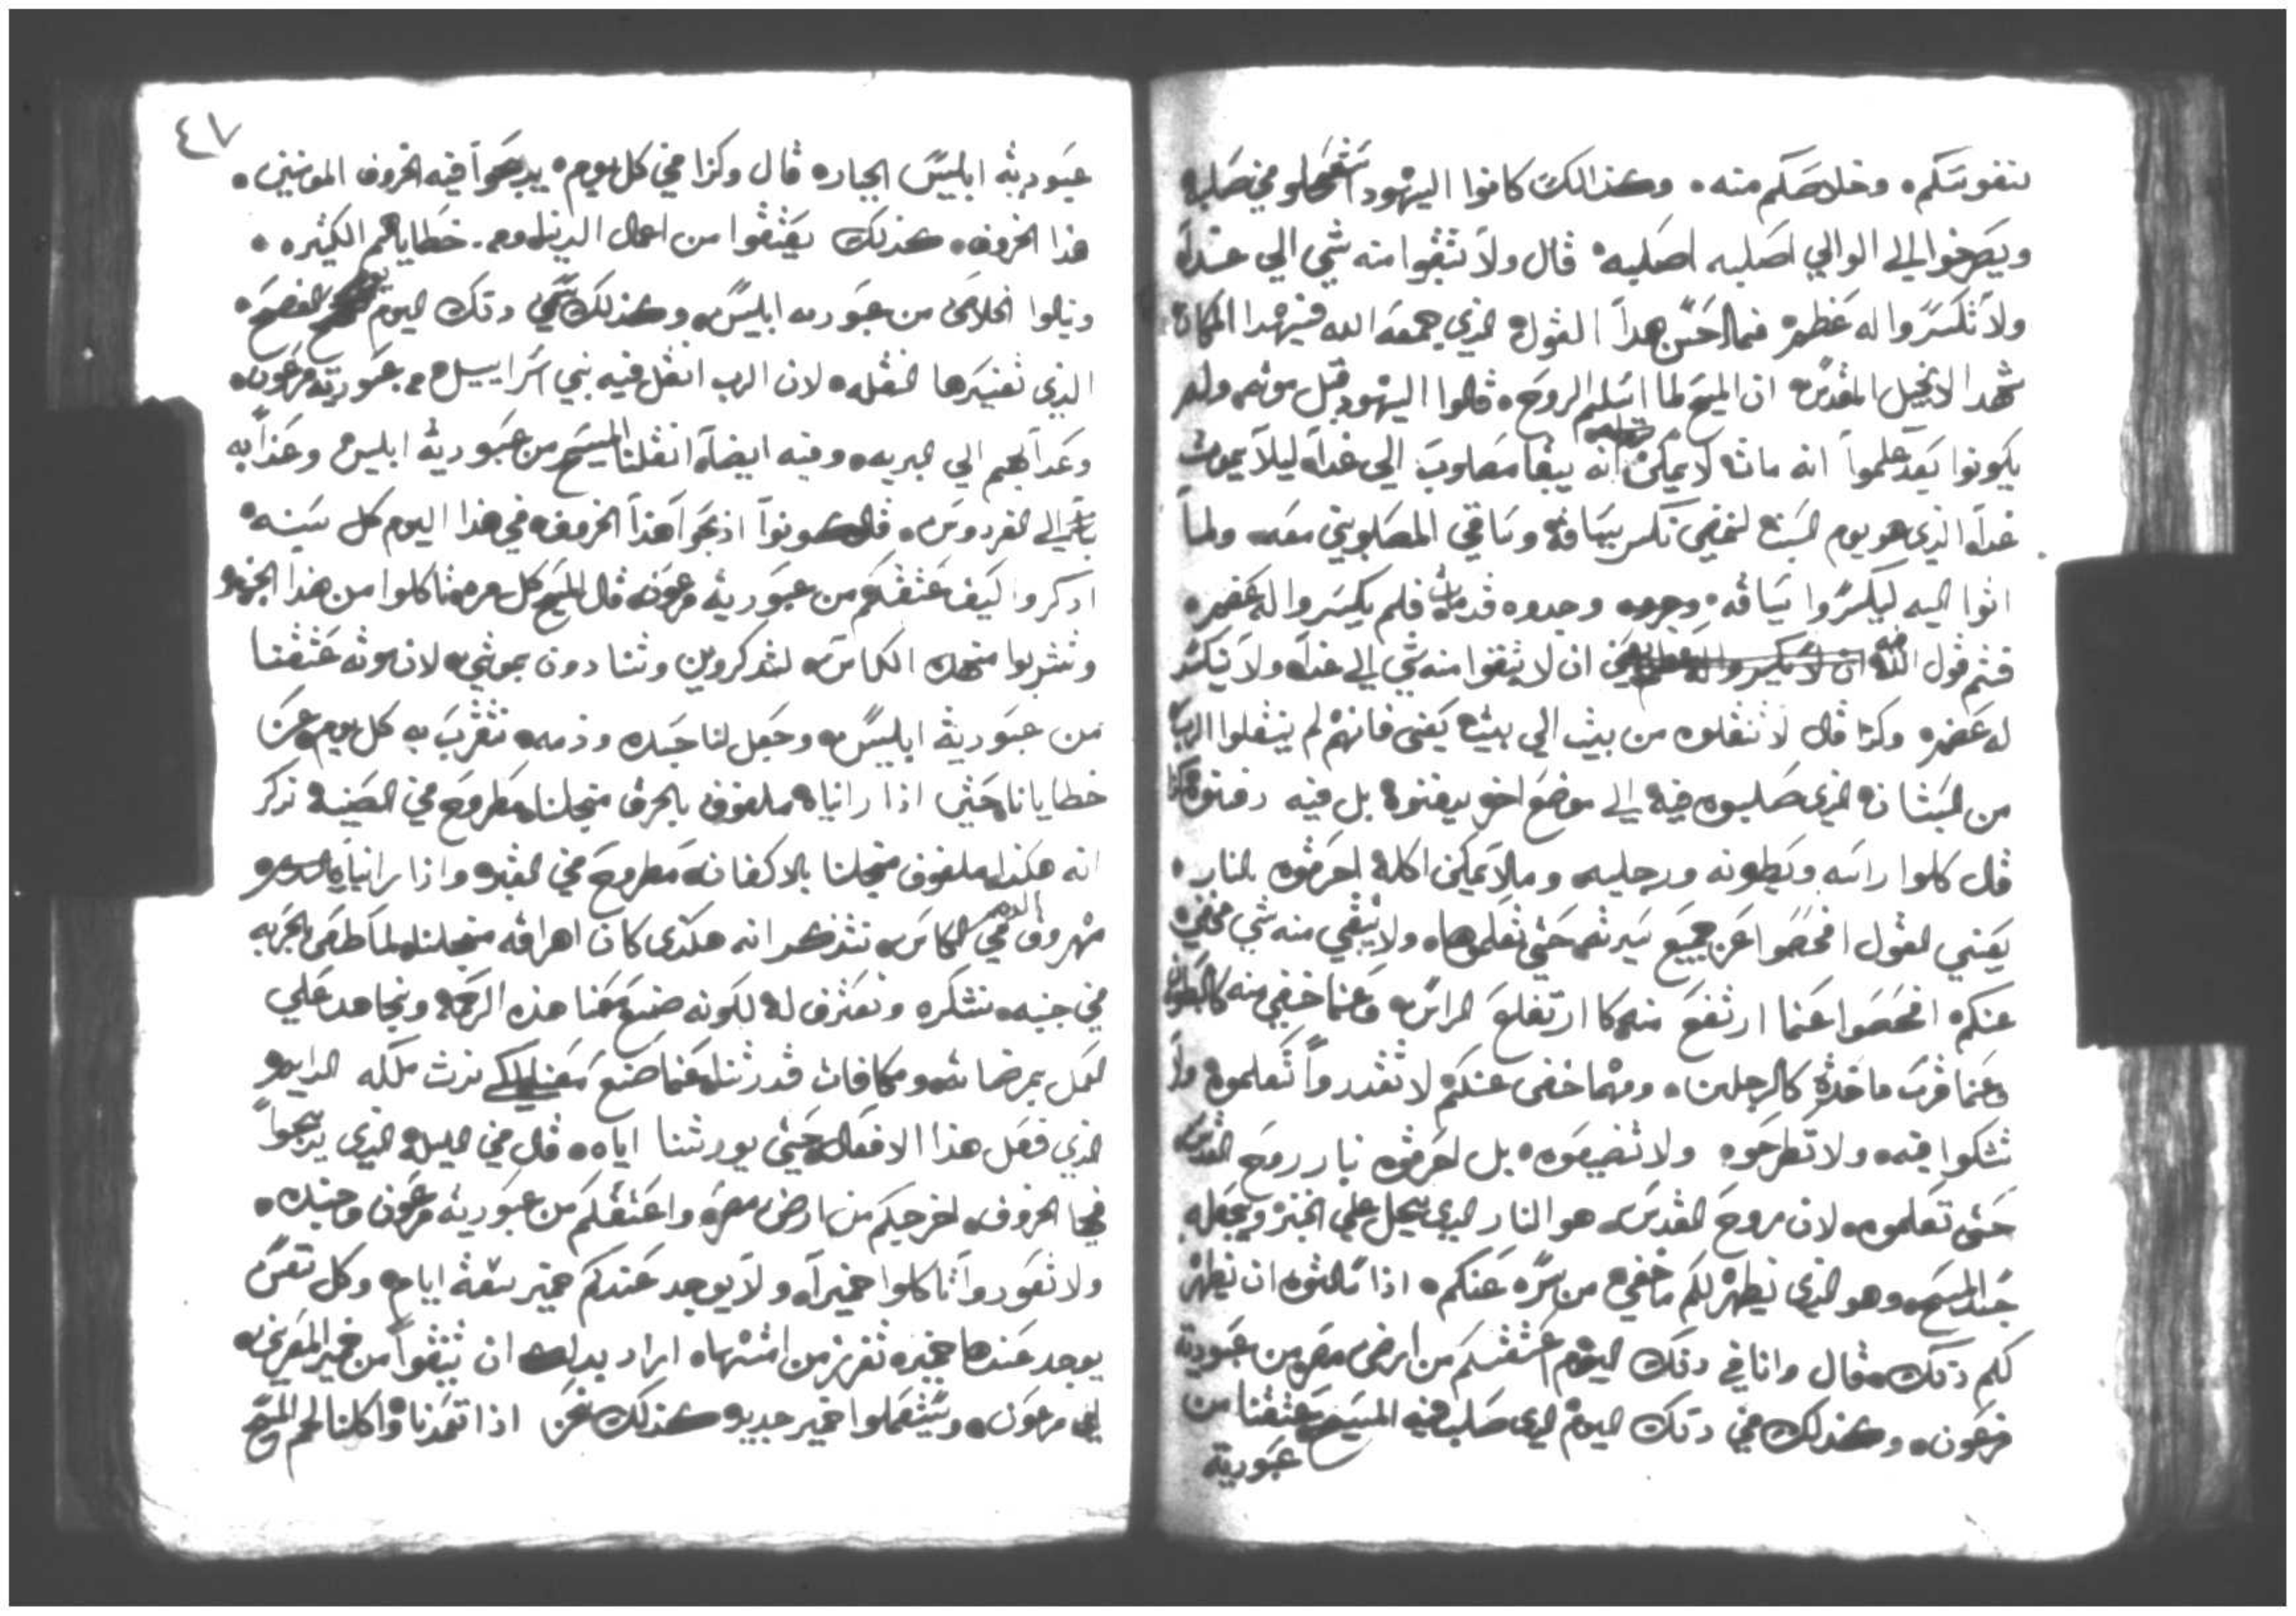 لنفوسكم وخلاصكم منه وكذالك كانوا اليهود استعجلو في صلبه
ويصرخوا الي الوالي اصلبه اصلبه قال ولا تبقوا منه شي الي غداً
ولا تكسروا له عظم فما احسن هدا القول الذي جمعه الله في هدا المكان
شهد الانجيل المقدس ان المسيح لما اسلم الروح قالوا اليهود قبل موته ولم
يكونوا بعد علموا انه مات لا يمكن انه يبقا مصلوب الي غداً ليلا يموت
غداً الذي هو يوم السبت لنمضي نكسر ساقه وساقي المصلوبين معه ولما
اتوا اليه ليكسروا ساقه وجدوه قد مات فلم يكسروا له عضم
فتم قول الله ان لا تبقوا منه شي الي غداً ولا تكسر
له عضم وكدا قال لا تنقلوه من بيت الي بيت يعني فانهم لم ينقلوا الرب
من البستان الذي صلبوه فيه الي موضع اخر يدفنوه بل فيه دفنوه
قال كلوا راسه وبطونه ورجليه وما لا يمكن اكله احرقوه بالنار
يعني القول افحصوا عن جميع سيرته حتي تعلموها ولا يبقي منه شي مخفي
عنكم افحصوا عنما ارتفع منه كا ارتفاع الراس وعنما خفي منه كالبطون
وعنما قرب ماخده كالرجلين ومهما خفى عنكم لا تقدروا تعلموه ولا
تشكوا فيه ولا تطرحوه ولا تضيعوه بل احرقوه بنار روح القدس
حتى تعلموه لان روح القدس هو النار الذي يحل علي الخبز ويجعله
جسد المسيح وهو الذي يظهر لكم ما خفي من سره عنكم اذا سالتوه ان يظهر
لكم ذلك قال وانا في دلك اليوم اعتقتكم من ارض مصر من عبودية
فرعون وكذلك في دلك اليوم الدي صلب فيه المسيح عتقنا من
عبودية
٤٧
عبودية ابليس الجبار قال وكدا في كل يوم يدبحوا فيه الخروف المومنين
هدا الخروف كذلك يعتقوا من اعمال الدنيا ومن خطاياهم الكثيره
وينالوا الخلاص من عبوديه ابليس وكذلك سمي دلك اليوم الفصح
الذي تفسيرها النقله لان الرب انقل فيه بني اسراييل من عبودية فرعون
وعدابهم الي البريه وفيه ايضاً انقلنا المسيح من عبودية ابليس وعدابه
الي الفردوس قال كونوا ادبحوا هذا الخروف في هذا اليوم كل سنه
ادكروا كيف عتقتكم من عبودية فرعون قال المسيح كل مره تاكلوا من هذا الخبز
وتشربوا من هده الكاس لتدكروني وتنادون بموتي لان موته عتقنا
من عبودية ابليس وجعل لنا جسده ودمه نتقرب به كل يوم عن
خطايانا حتى اذا راناه ملفوف بالخرق من اجلنا مطروح في الصينيه ندكر
انه هكذا ملفوف من اجلنا بالاكفان مطروح في القبر واذا راناه
مهروق الدم في الكاس نتذكر انه هكدى كان اهراقه من اجلنا لما طعن بالحربه
في جنبه نشكره ونعترف له لكونه صنع معنا هذه الرحمه ونجاهد علي
العمل بمرضاته ومكافات قدرتنا عنما صنع معنا لكي نرث ملكه الدايم
الذي فعل هذا الافعال حتى يورثنا اياه قال في الليله الذي يدبحوا
فيها الخروف اخرجكم من ارض مصر واعتقكم من عبودية فرعون وجنده
ولا تعودوا تاكلوا خميراً ولا يوجد عندكم خمير سبعة ايام وكل نفس
يوجد عندها خميره تفرز من امتها اراد بدلك ان تنقوا من خمير المصريين
اي فرعون وتستعملوا خمير جديد كذلك نحن اذا تعمدنا واكلنا لحم المسيح